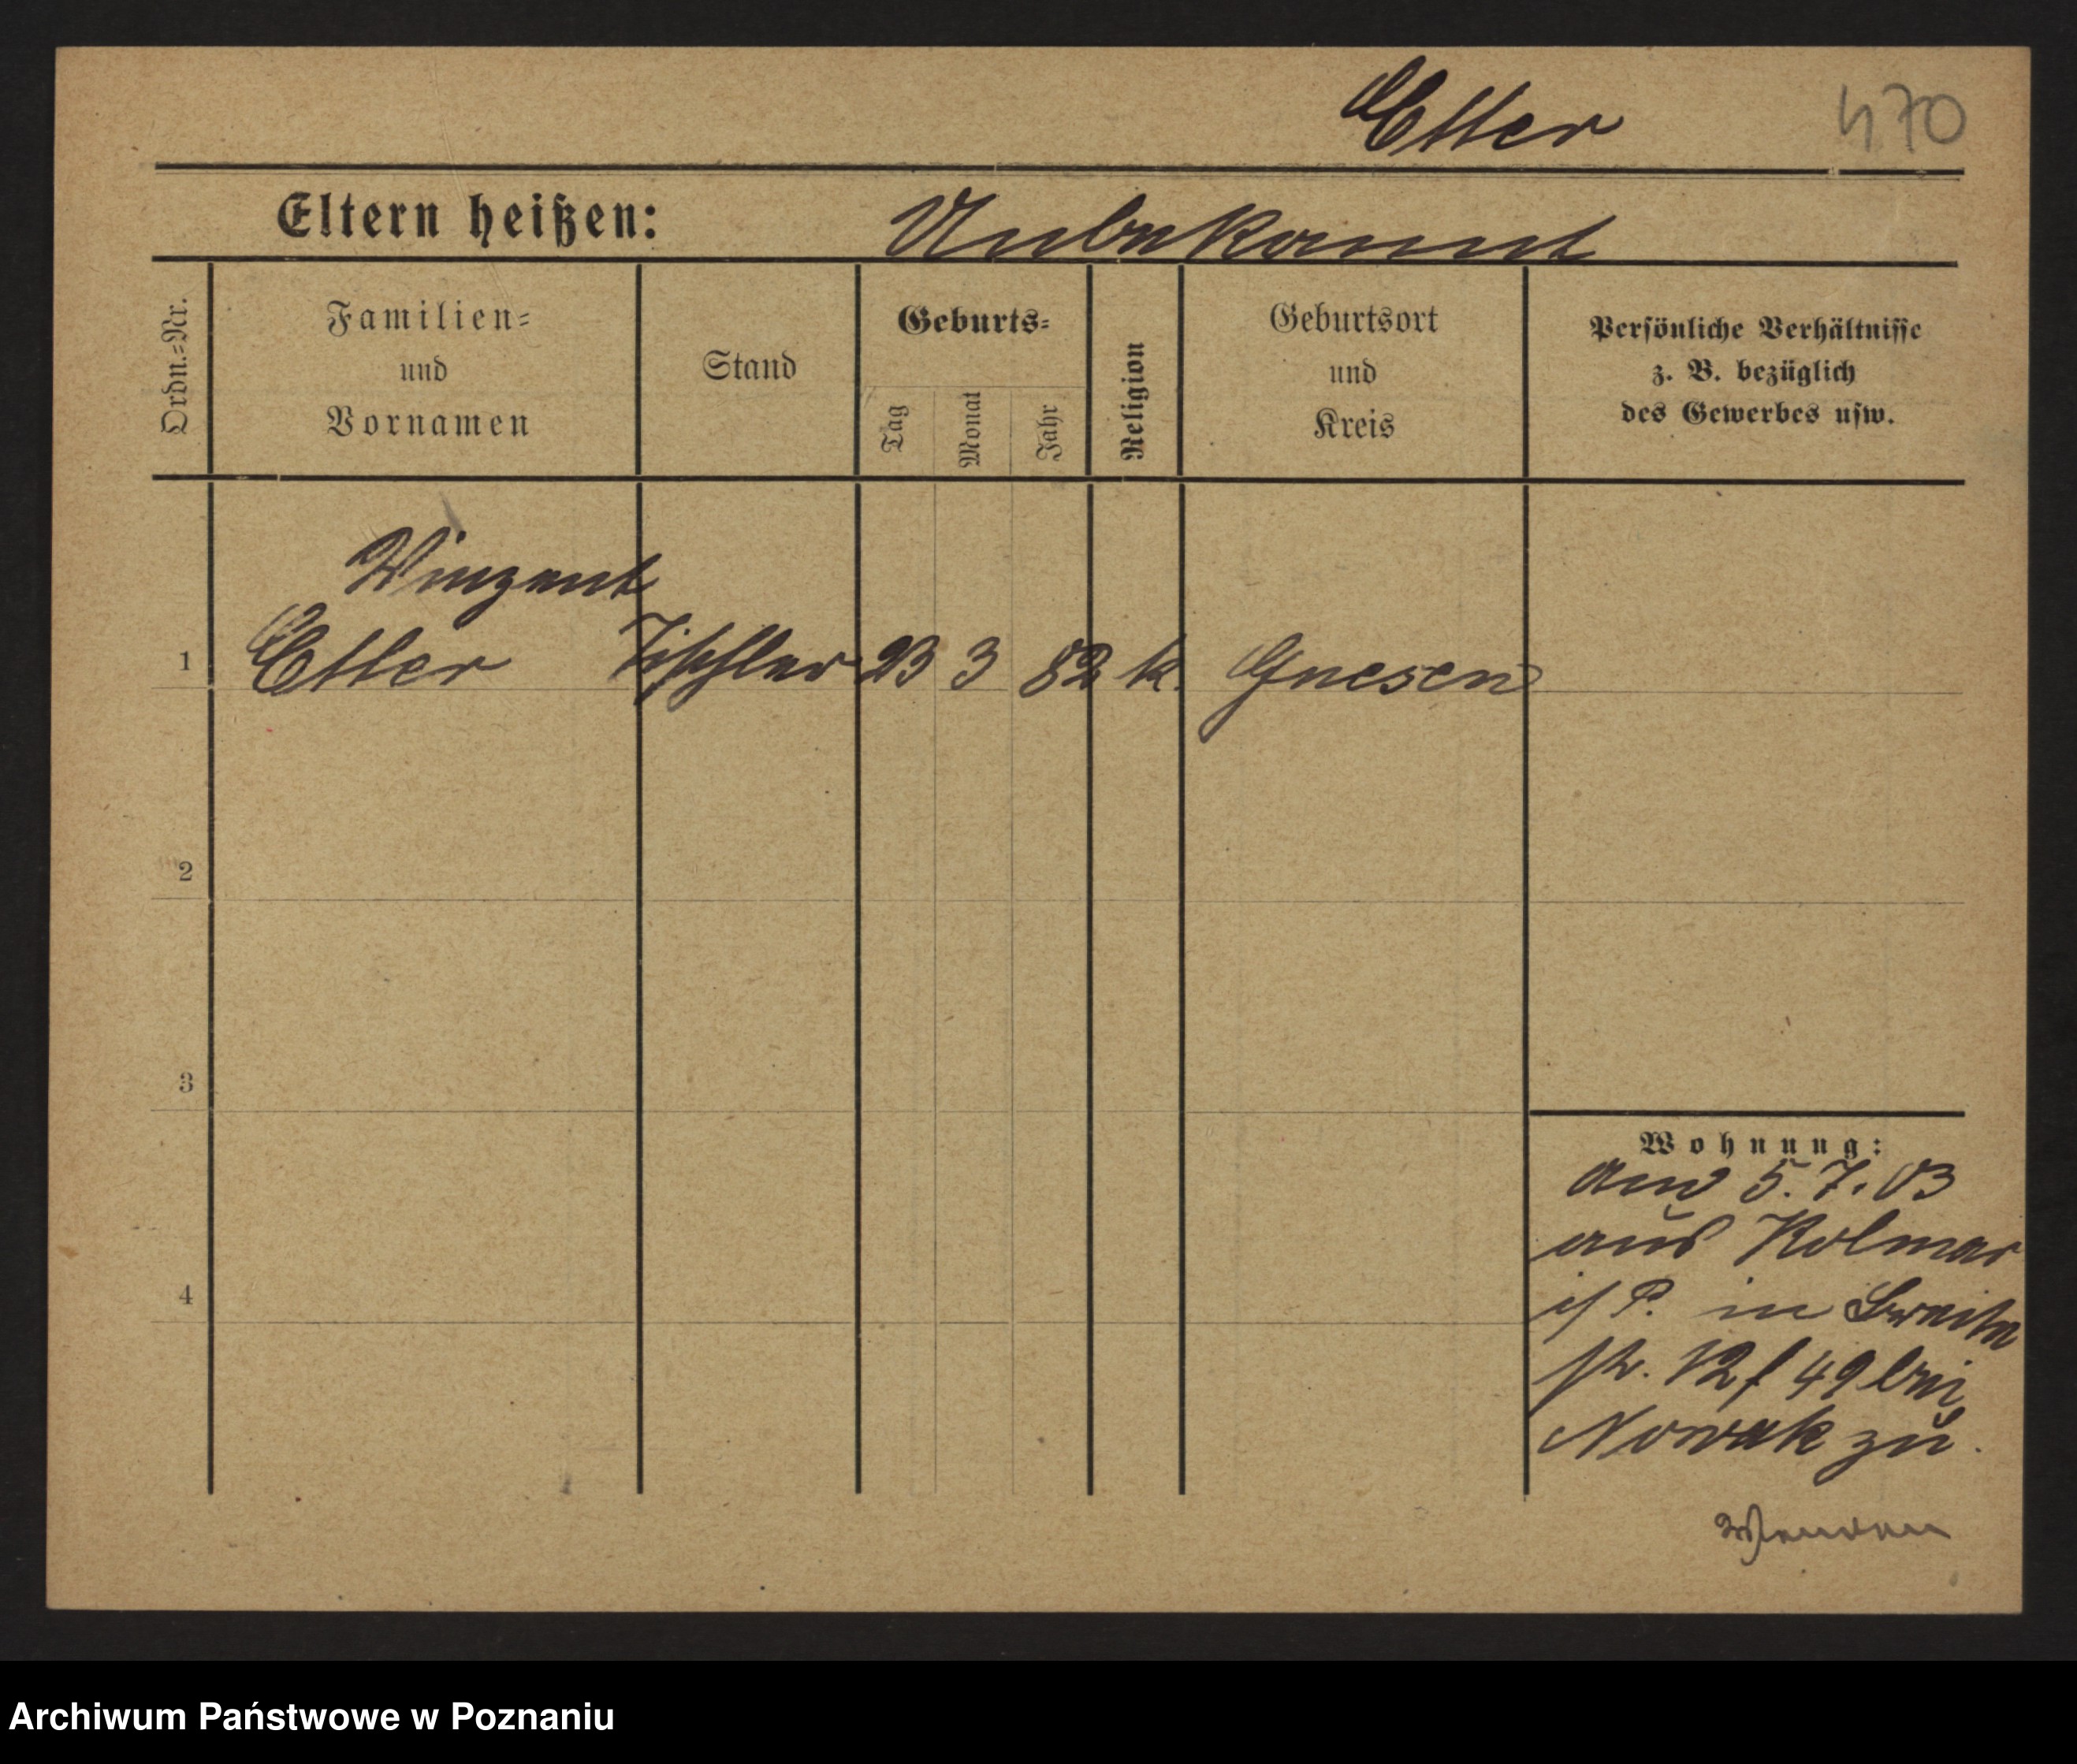 Etler 470
Eltern heißen: Unbekannt
Ordn.=Nr.
Familien=
und
Vornamen
Stand
Geburts=
Tag
Monat
Jahr
Religion
Geburtsort
und
Kreis
Persönliche Verhältnisse
z. B. bezüglich
des Gewerbes usw.
Vinzent
1 Etler Tischler 23 3 82 k. Gnesen
2
3
4
Wohnung:
5. 7. 03
aus Kolmar
i/P. in Breite
str. 12 f 49 bei
Nowak zu.
Wenden
Archiwum Państwowe w Poznaniu